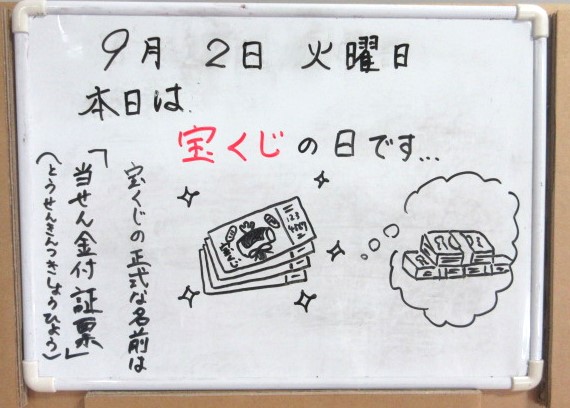 9月 2日 火曜日
本日は
宝くじの日です...
宝くじの正式な名前は
「当せん金付証票」
(とうせんきんつきしょうひょう)
123